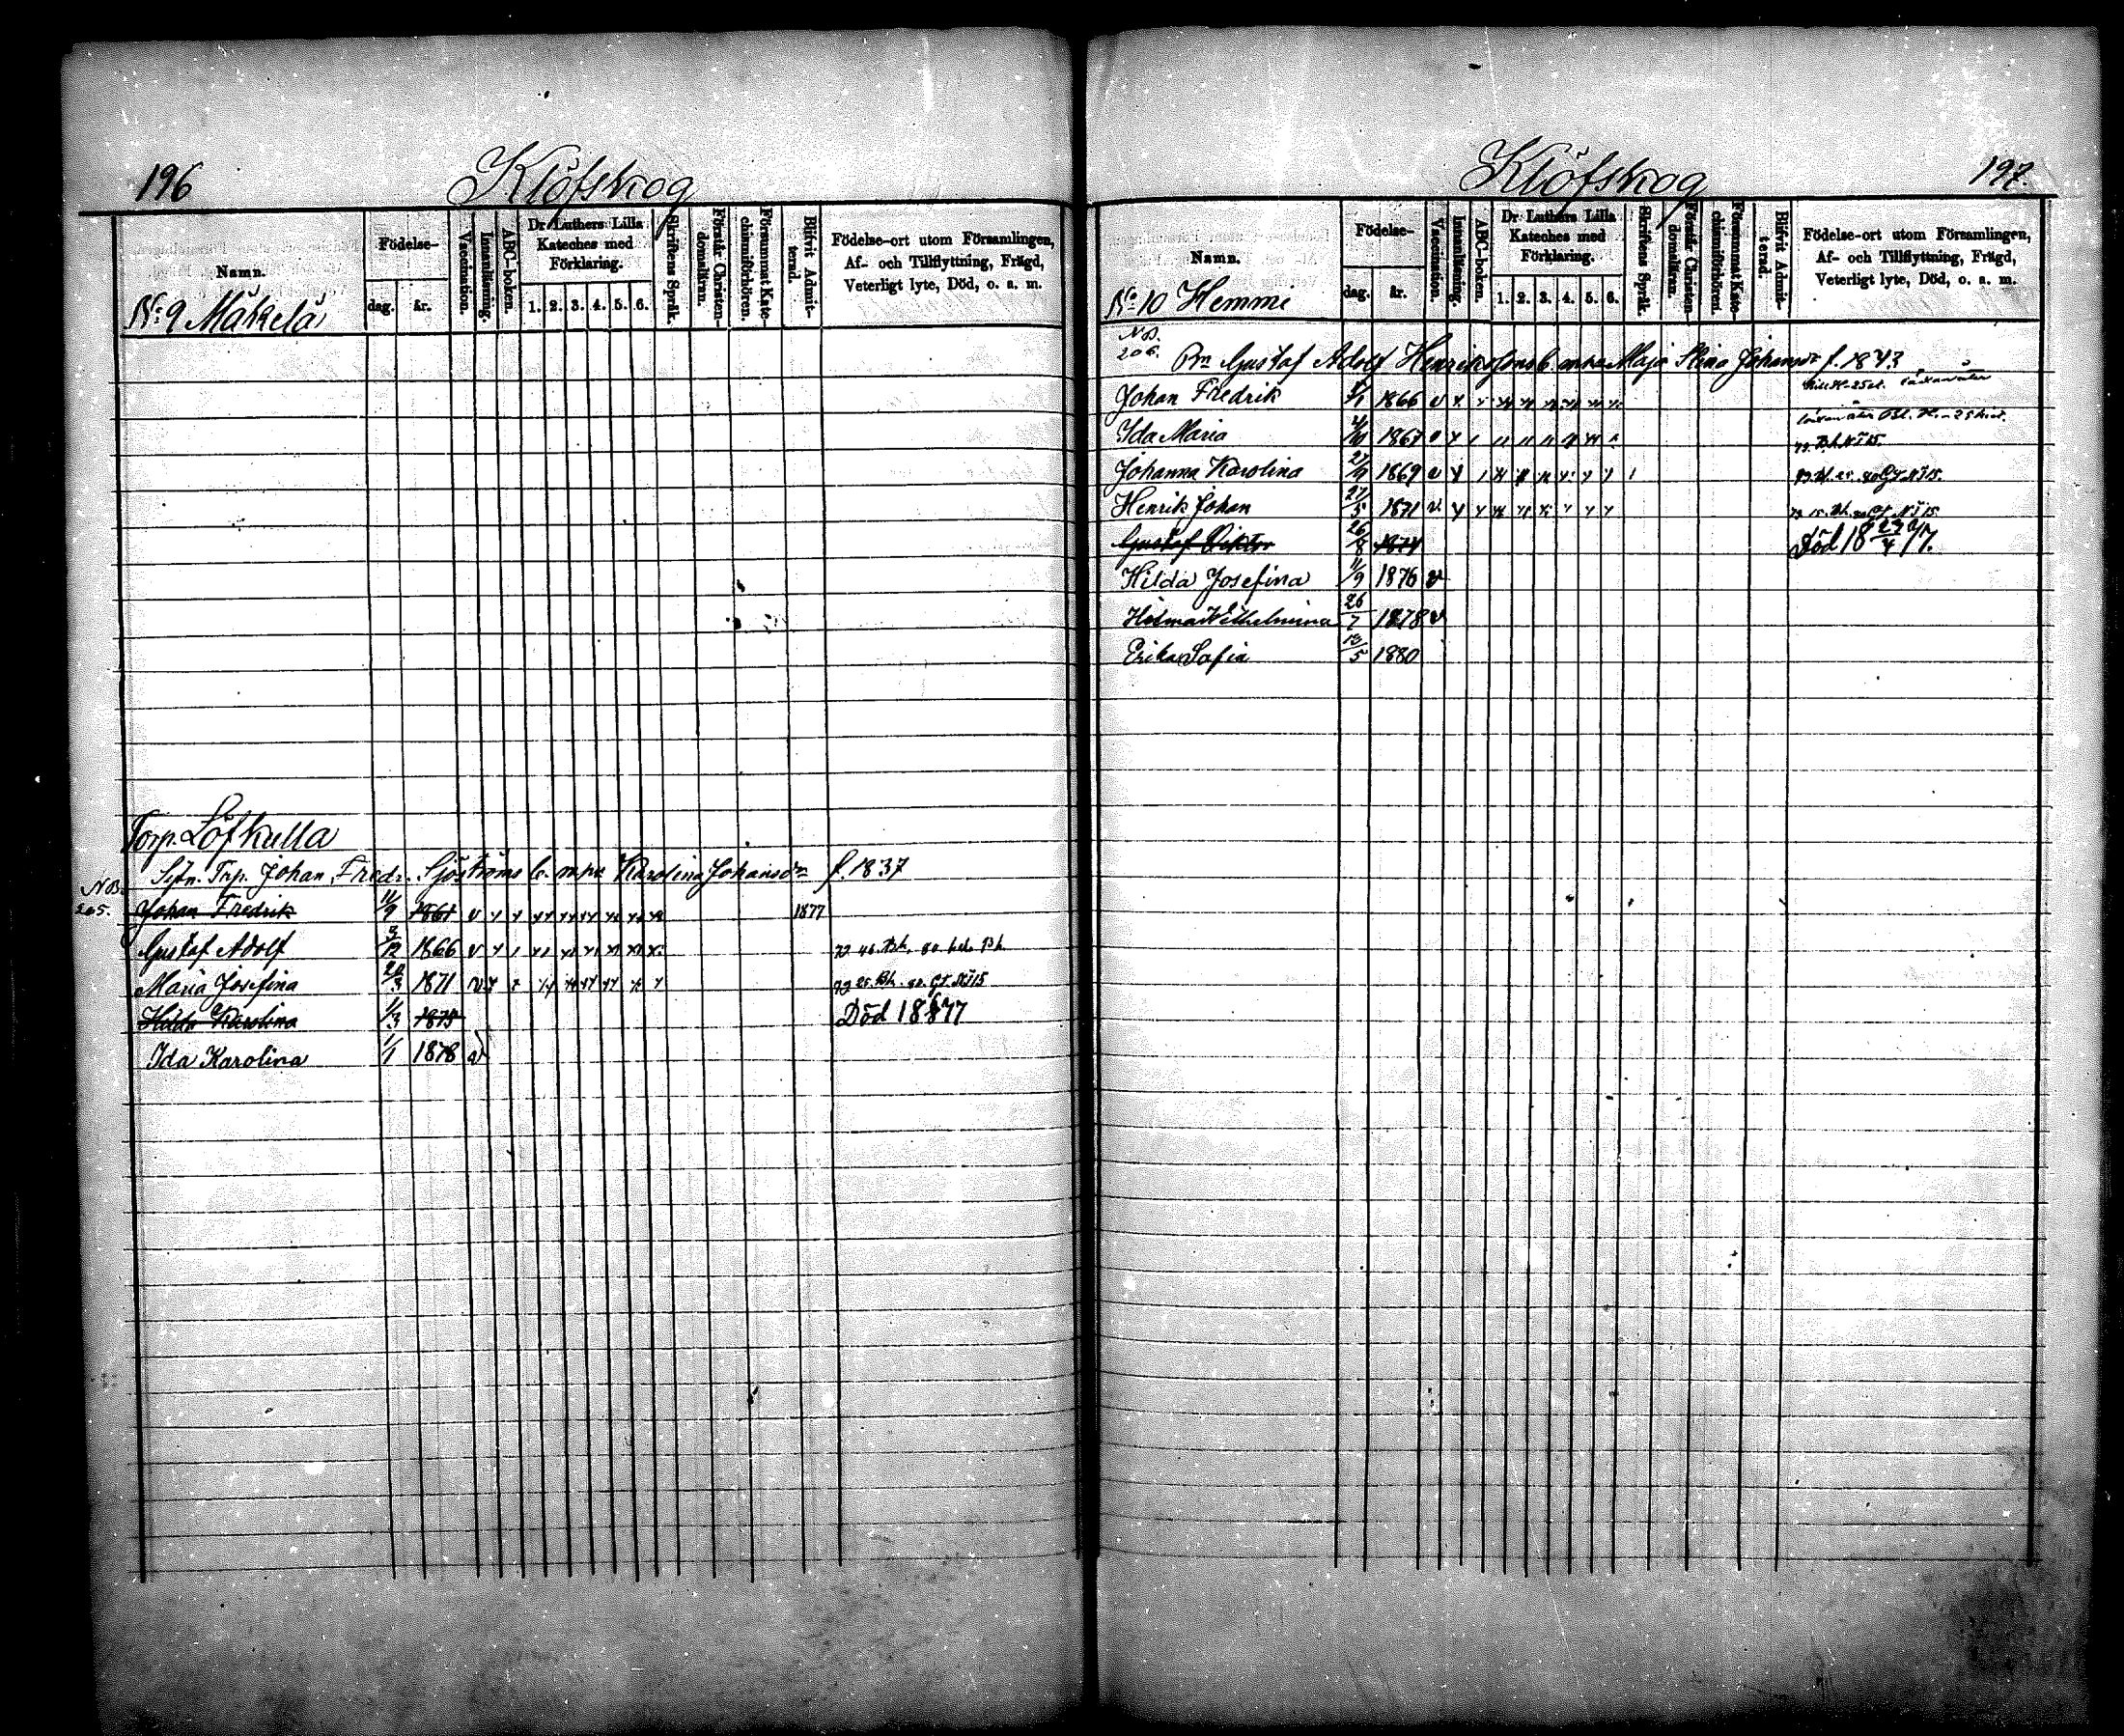 196
Klöfskog
Namn.
Födelse-
dag.
år.
Vaccination.
Innanläsning.
ABC-boken.
Dr Luthers Lilla
Kateches med
Förklaring.
1. 2. 3. 4. 5. 6.
Skriftens Språk.
Förstår Christen-
domsläran.
Försummat Kate-
chismiförhören.
Blifvit Admit-
terad.
Födelse-ort utom Församlingen,
Af- och Tillflyttning, Frägd,
Veterligt lyte, Död, o. a. m.
No 9 Mäkelä
Torp. Löfkulla
Johan Fredr. Sjöströms b. m. Karolina Johansdr f. 1837
NB. 205.
Johan Fredrik 11/9 1861 v 1877
Gustaf Adolf 1866 v
Maria Josefina 20/3 1871 v
Hilda Karolina 1/3 1875 Död 1877
Ida Karolina 1/1 1878 v
Klöfskog
197.
Namn.
Födelse-
dag.
år.
Vaccination.
Innanläsning.
ABC-boken.
Dr Luthers Lilla
Kateches med
Förklaring.
1. 2. 3. 4. 5. 6.
Skriftens Språk.
Förstår Christen-
domsläran.
Försummat Kate-
chismiförhören.
Blifvit Admit-
terad.
Födelse-ort utom Församlingen,
Af- och Tillflyttning, Frägd,
Veterligt lyte, Död, o. a. m.
No 10 Hemme
NB.
206. Gustaf Adolf Henrikssons b. m. Maja Stina Johansdr f. 1843
Johan Fredrik 1866 v
Ida Maria 1867
Johanna Karolina 27/9 1869 v
Henrik Johan 27/5 1871 v
Gustaf Viktor 26/8 1874 Död 18 23/4 77.
Hilda Josefina 11/9 1876 v
Hilma Wilhelmina 26/7 1878 v
Erika Sofia 13/5 1880